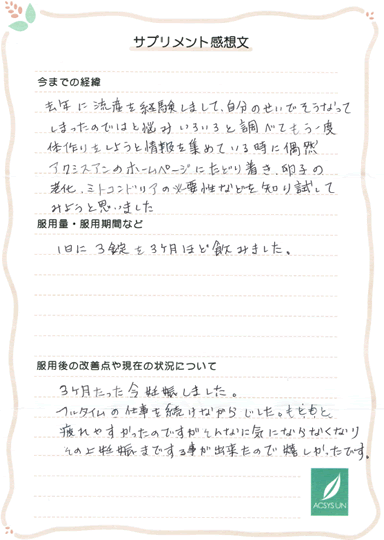 サプリメント感想文
今までの経緯
去年に流産を経験しまして、自分のせいでそうなって
しまったのではと悩みいろいろと調べてもう一度
体作りをしようと情報を集めている時に偶然
アクシスアンのホームページにたどり着き、卵子の
老化、ミトコンドリアの必要性などを知り試して
みようと思いました
服用量・服用期間など
1日に3錠を3ヶ月ほど飲みました。
服用後の改善点や現在の状況について
3ヶ月たった今妊娠しました。
フルタイムの仕事を続けながらでした。もともと
疲れやすかったのですがそんなに気にならなくなり
その上妊娠までする事が出来たので嬉しかったです。
ACSYS UN